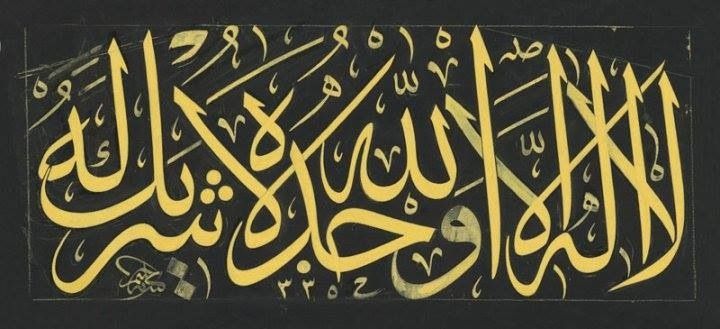 لا اله الا الله وحده لا شريك له